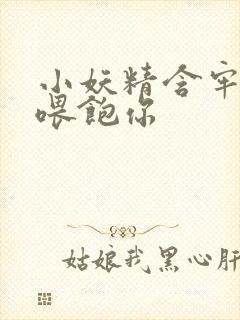 小妖精含牢
喂飽你
姑娘我黑心肝